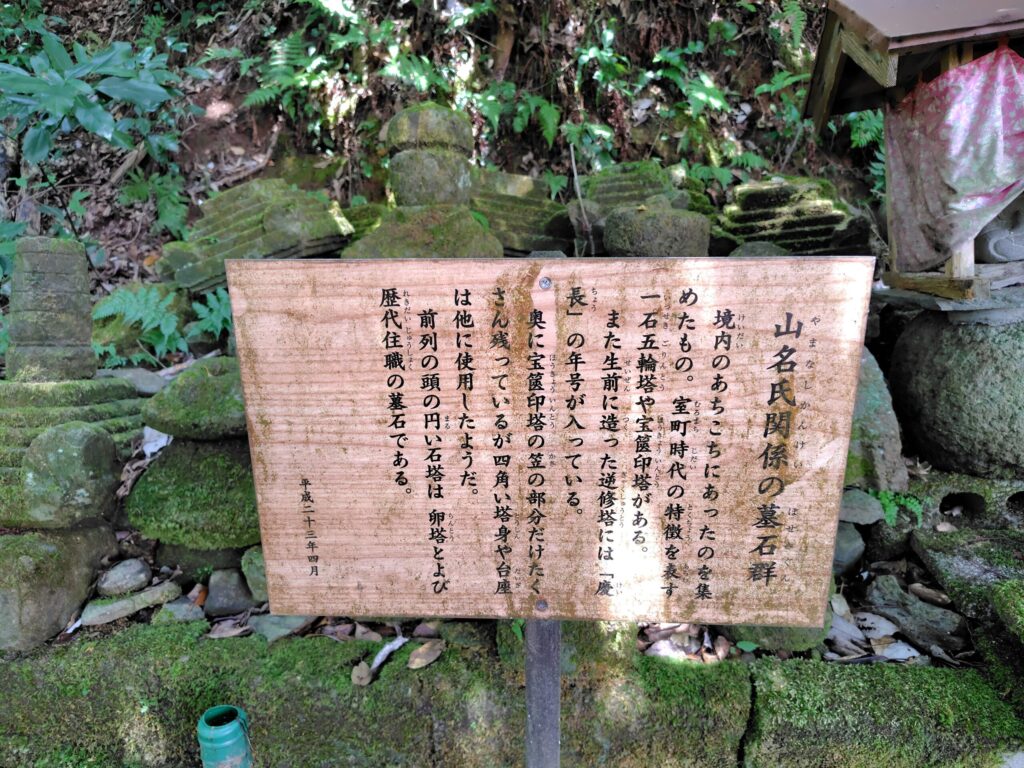 山名氏関係の墓石群
境内のあちこちにあったのを集
めたもの。室町時代の特徴を表す
一石五輪塔や宝篋印塔がある。
また生前に造った逆修塔には「慶
長」の年号が入っている。
奥に宝篋印塔の笠の部分だけたく
さん残っているが四角い塔身や台座
は他に使用したようだ。
前列の頭の円い石塔は 卵塔とよび
歴代住職の墓石である。
平成二十三年四月